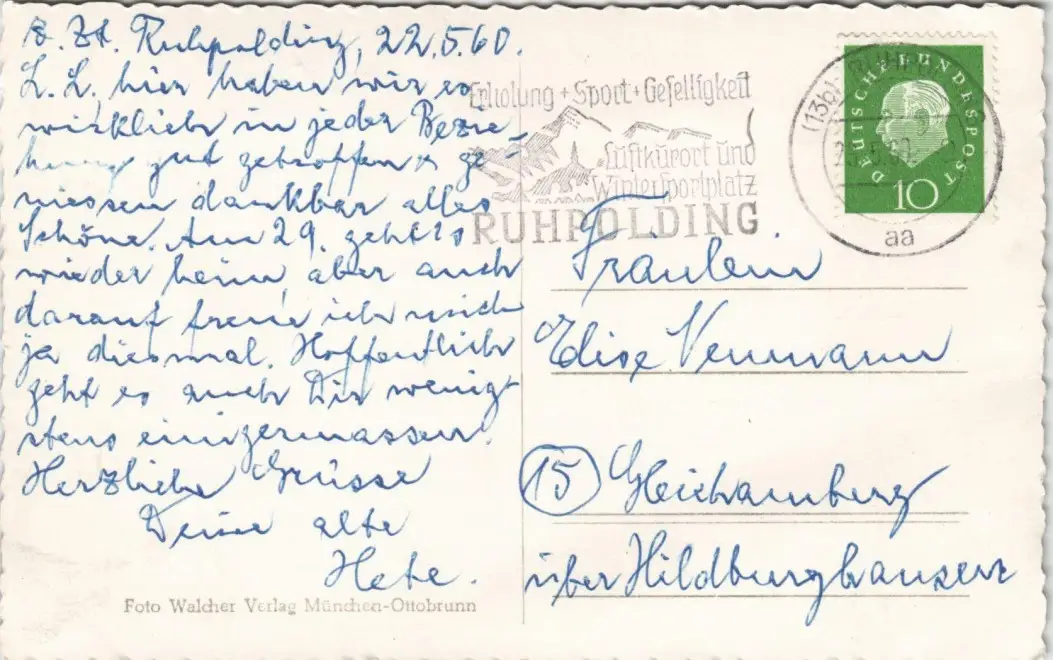 z. Zt. Ruhpolding, 22.5.60.
L. L., hier haben wir es
wirklich in jeder Bezie-
hung gut getroffen & ge-
niessen dankbar alles
Schöne. Am 29. geht's
wieder heim, aber auch
darauf freue ich mich
ja diesmal. Hoffentlich
geht es auch Dir wenig-
stens einigermassen.
Herzliche Grüsse
Deine alte
Hete.
Foto Walcher Verlag München-Ottobrunn
Erholung + Sport + Geselligkeit
Luftkurort und
Wintersportplatz
RUHPOLDING
(13b) RUHP
5.60
aa
DEUTSCHE BUNDESPOST
10
Fräulein
Elise Neumann
(15) Gleichamberg
über Hildburghausen